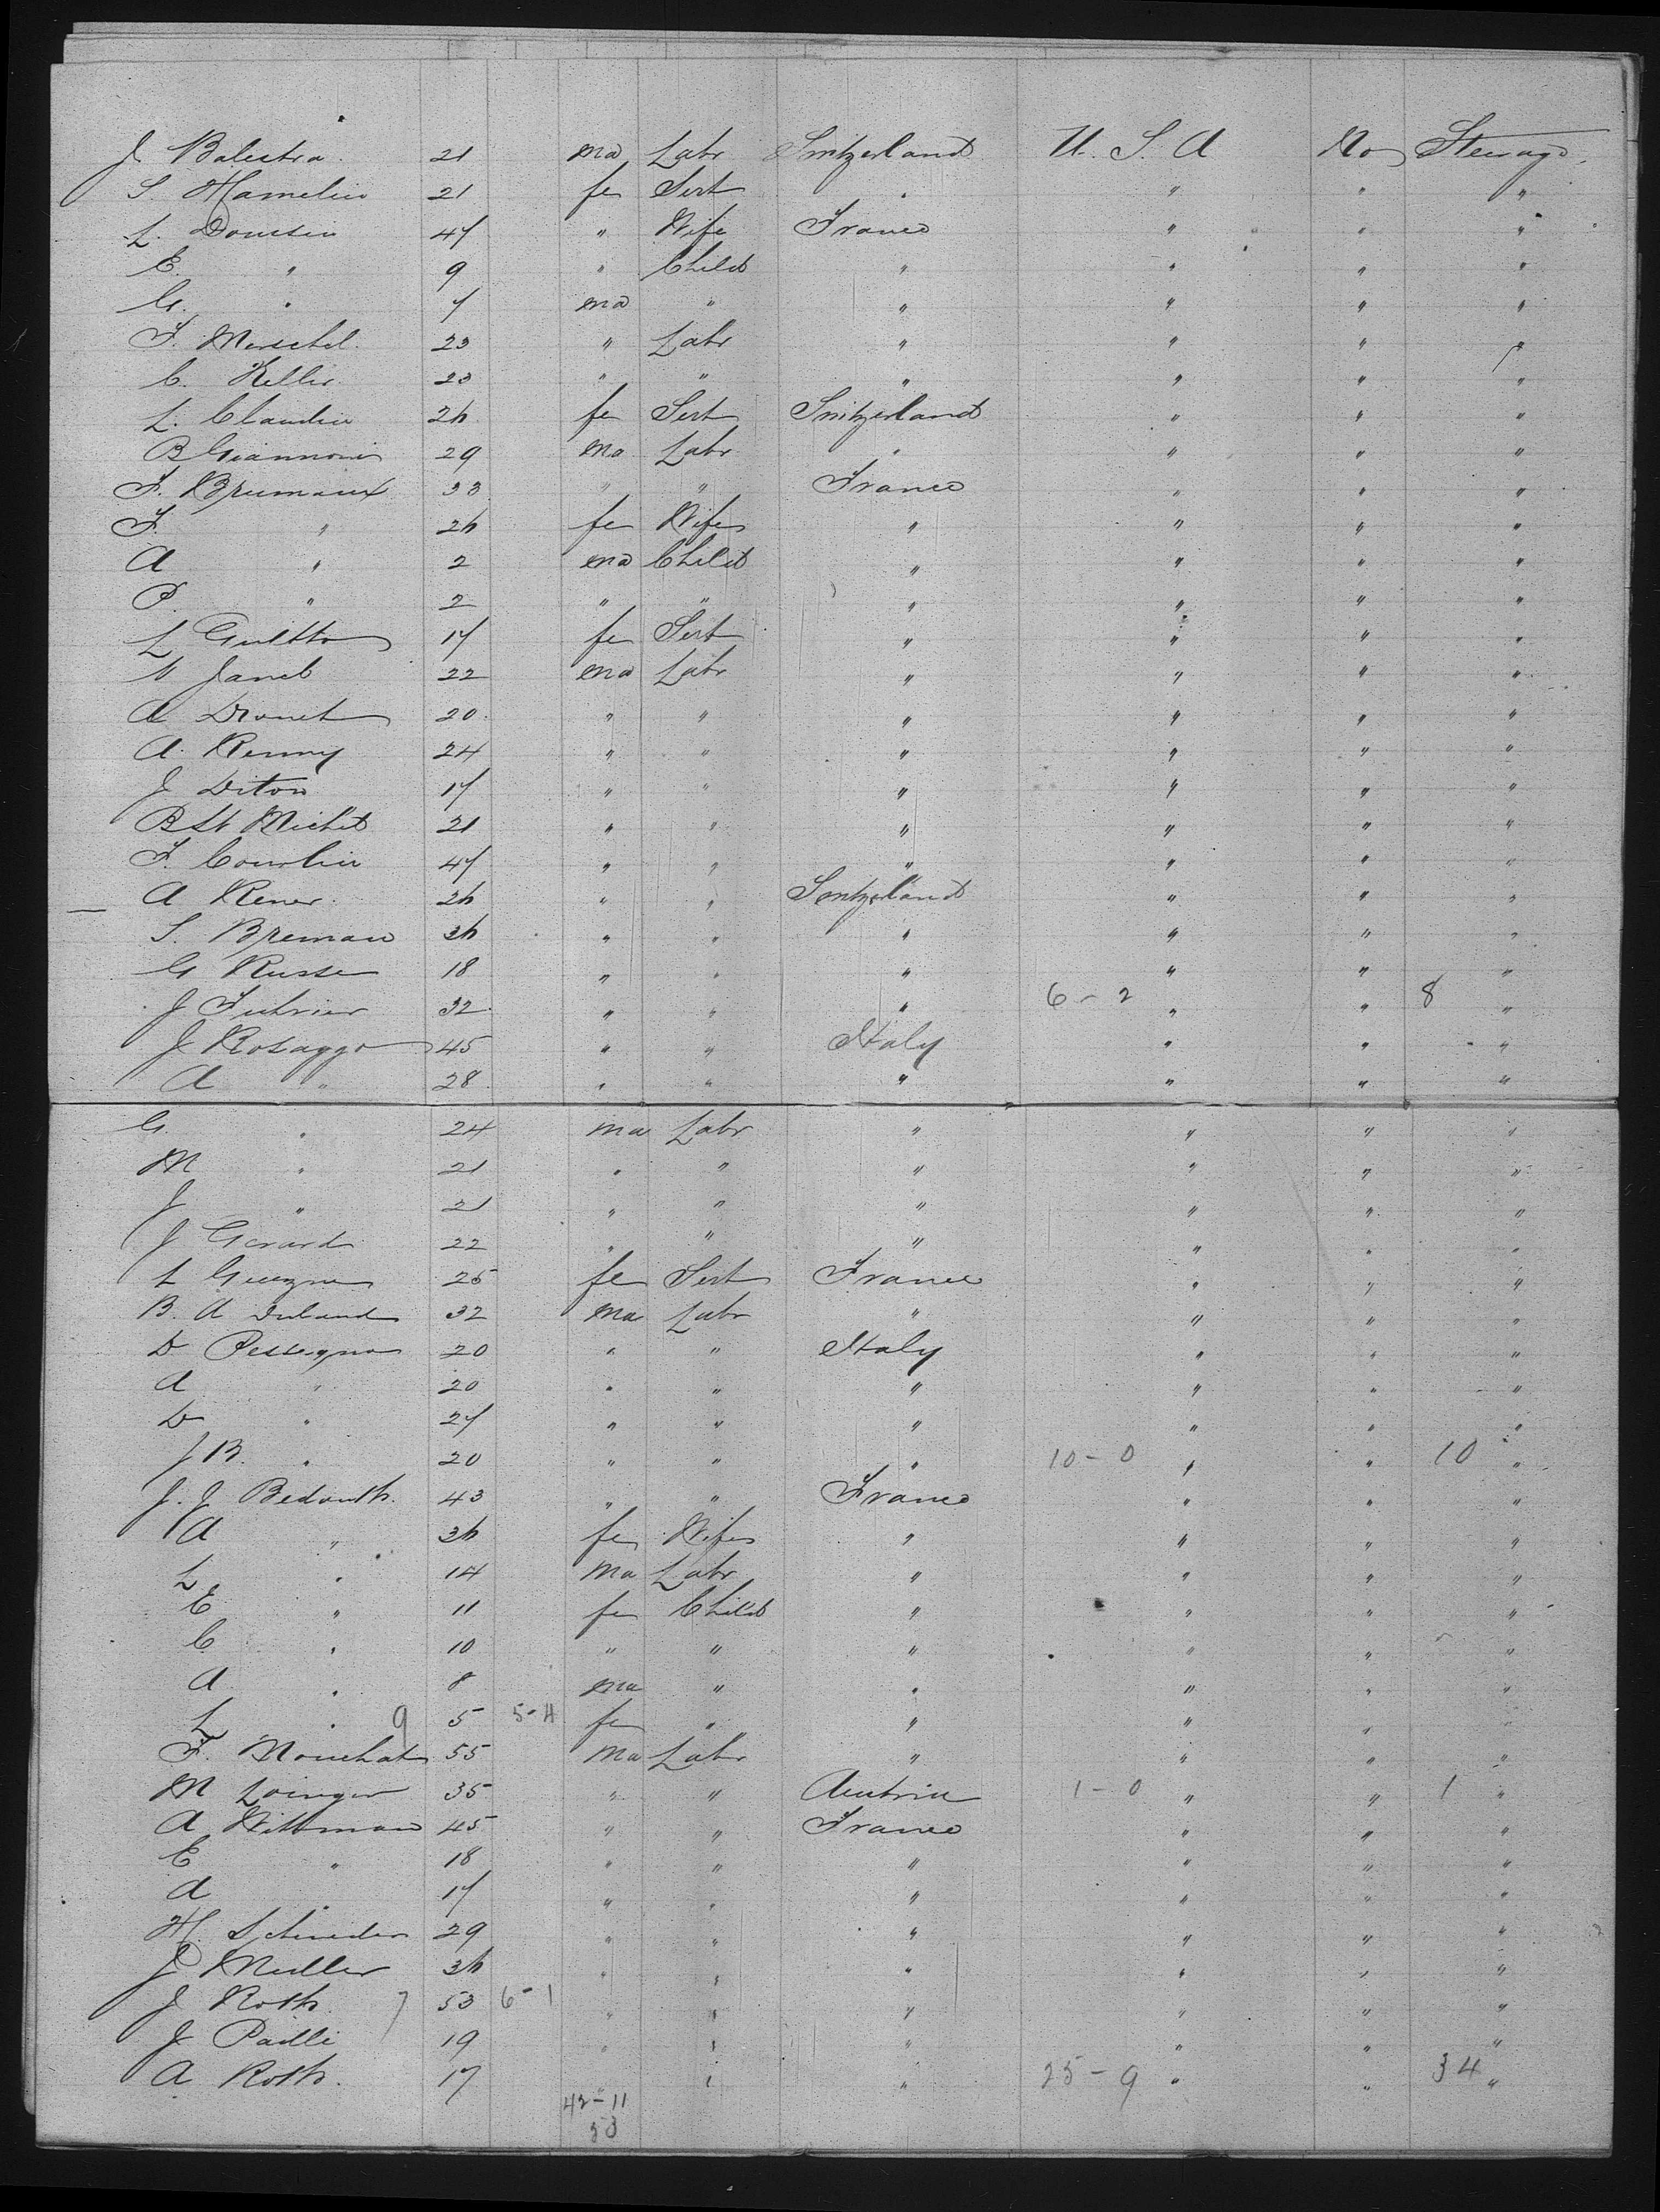 J Balestra 21 ma Labr Switzerland U. S. A No Steerage
S. Hamelin 21 fe Sert " " " "
L. Doussin 47 " Wife France " " "
E. " 9 " Child " " " "
G. " 7 ma " " " " "
F. Merschel 23 " Labr " " " "
C. Keller 23 " " " " " "
L. Claudin 26 fe Sert Switzerland " " "
B Giannoni 29 ma Labr " " " "
F. Brumaux 33 " " France " " "
F. " 26 fe Wife " " " "
A " 2 ma Child " " " "
P. " 2 " " " " " "
L 17 fe Sert " " " "
Janet 22 ma Labr " " " "
A Drouet 20 " " " " " "
A. Remy 24 " " " " " "
J Diton 17 " " " " " "
B St Michel 21 " " " " " "
F. Courlin 47 " " " " " "
A Rener 26 " " Switzerland " " "
S. Breman 36 " " " " " "
G Russe 18 " " " " " "
J 32 " " " 6-2 " " 8 "
J Rosaggo 45 " " Italy " " "
A " 28 " " " " " "
G. " 24 ma Labr " " " "
M " 21 " " " " " "
J " 21 " " " " " "
J Gerard 22 " " " " " "
L 25 fe Sert France " " "
B. A Duland 32 ma Labr " " " "
D Pessagno 20 " " Italy " " "
A " 20 " " " " " "
D " 27 " " " " " "
J B. " 20 " " " 10-0 " " 10 "
J. J Bedouth 43 " " France " " "
A " 36 fe Wife " " " "
L " 14 ma Labr " " " "
E " 11 fe Child " " " "
C " 10 " " " " " "
A " 8 ma " " " " "
L " 9 5 5-4 fe " " " " "
F. Mouchat 55 ma Labr " " " "
M Loinger 35 " " Austria 1-0 " " 1 "
A Wittman 45 " " France " " "
E " 18 " " " " " "
A " 17 " " " " " "
H. Schneider 29 " " " " " "
J Muller 36 " " " " " "
J Roth 7 53 6-1 " " " " " "
J Pailli 19 " " " " " "
A Roth. 17 " " " 25-9 " " 34 "
42-11
53